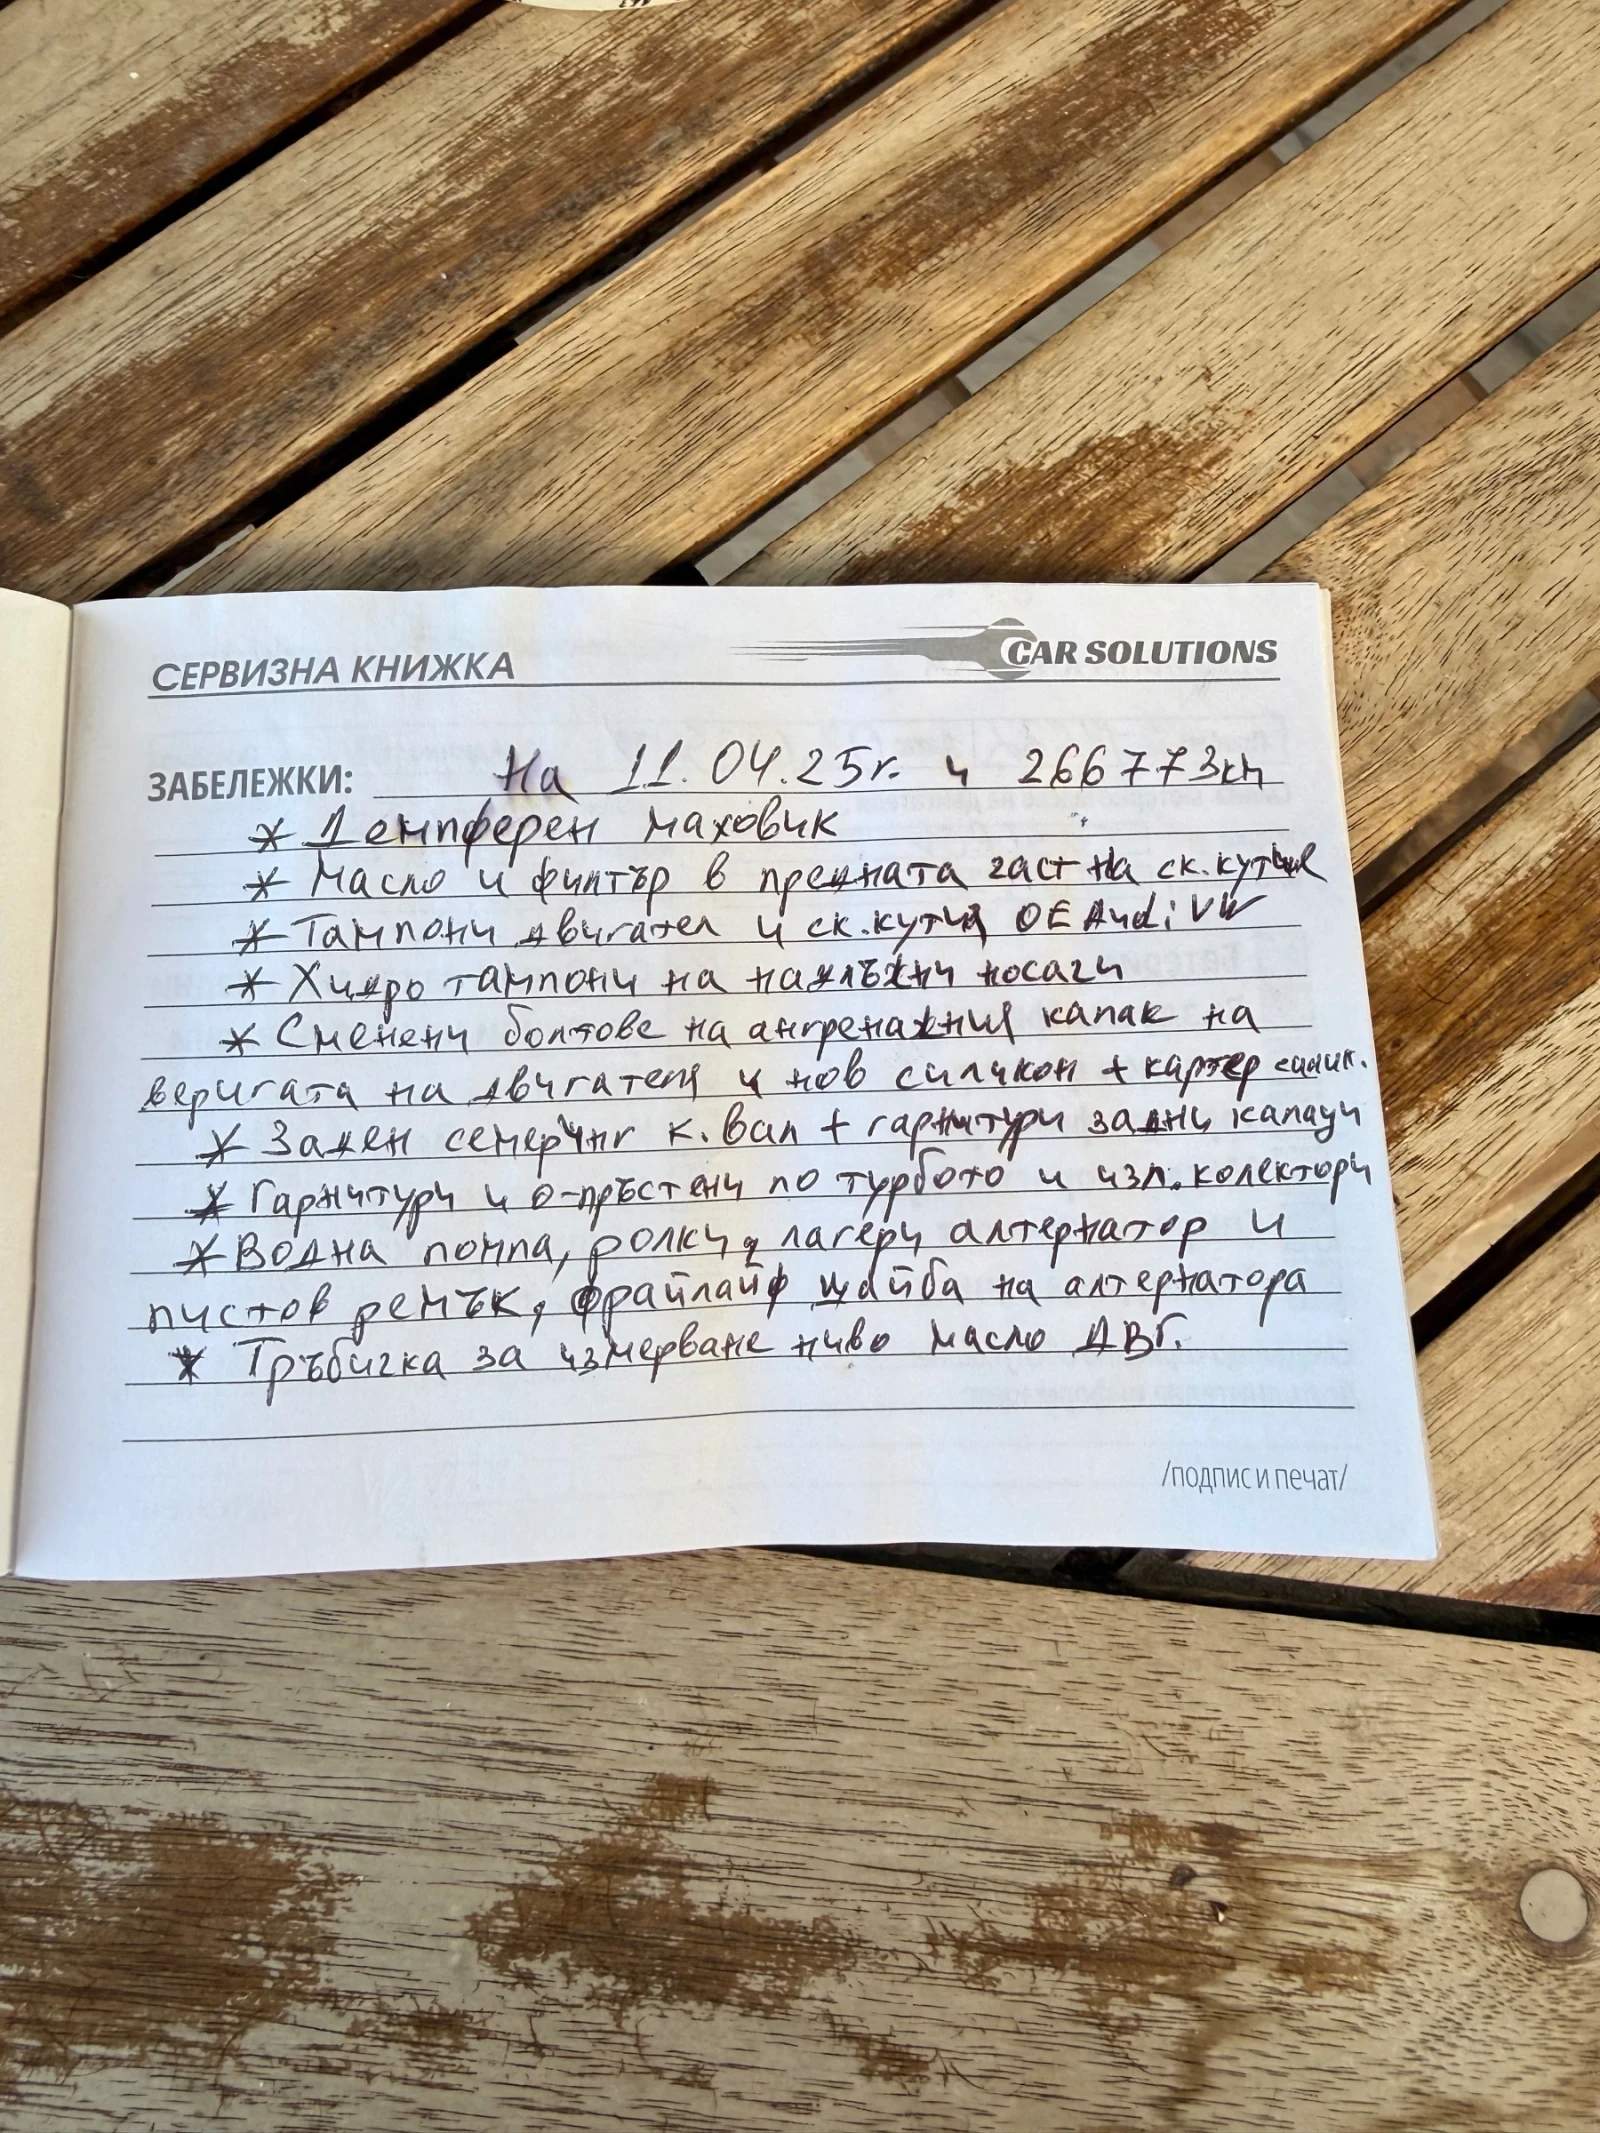 СЕРВИЗНА КНИЖКА
CAR SOLUTIONS
ЗАБЕЛЕЖКИ: На 11.04.25г. и 266773км
* Демпферен маховик
* Масло и филтър в предната част на ск.кутия
* Тампони двигател и ск.кутия OE Audi VW
* Хидро тампони на надлъжни носачи
* Сменени болтове на ангренажния капак на
веригата на двигателя и нов силикон + картер силик.
* Заден семеринг к.вал + гарнитури задни капаци
* Гарнитури и о-пръстени по турбото и изп. колектори
* Водна помпа, ролки, лагери алтернатор и
пистов ремък, фрайлайф шайба на алтернатора
* Тръбичка за измерване ниво масло ДВГ.
/подпис и печат/